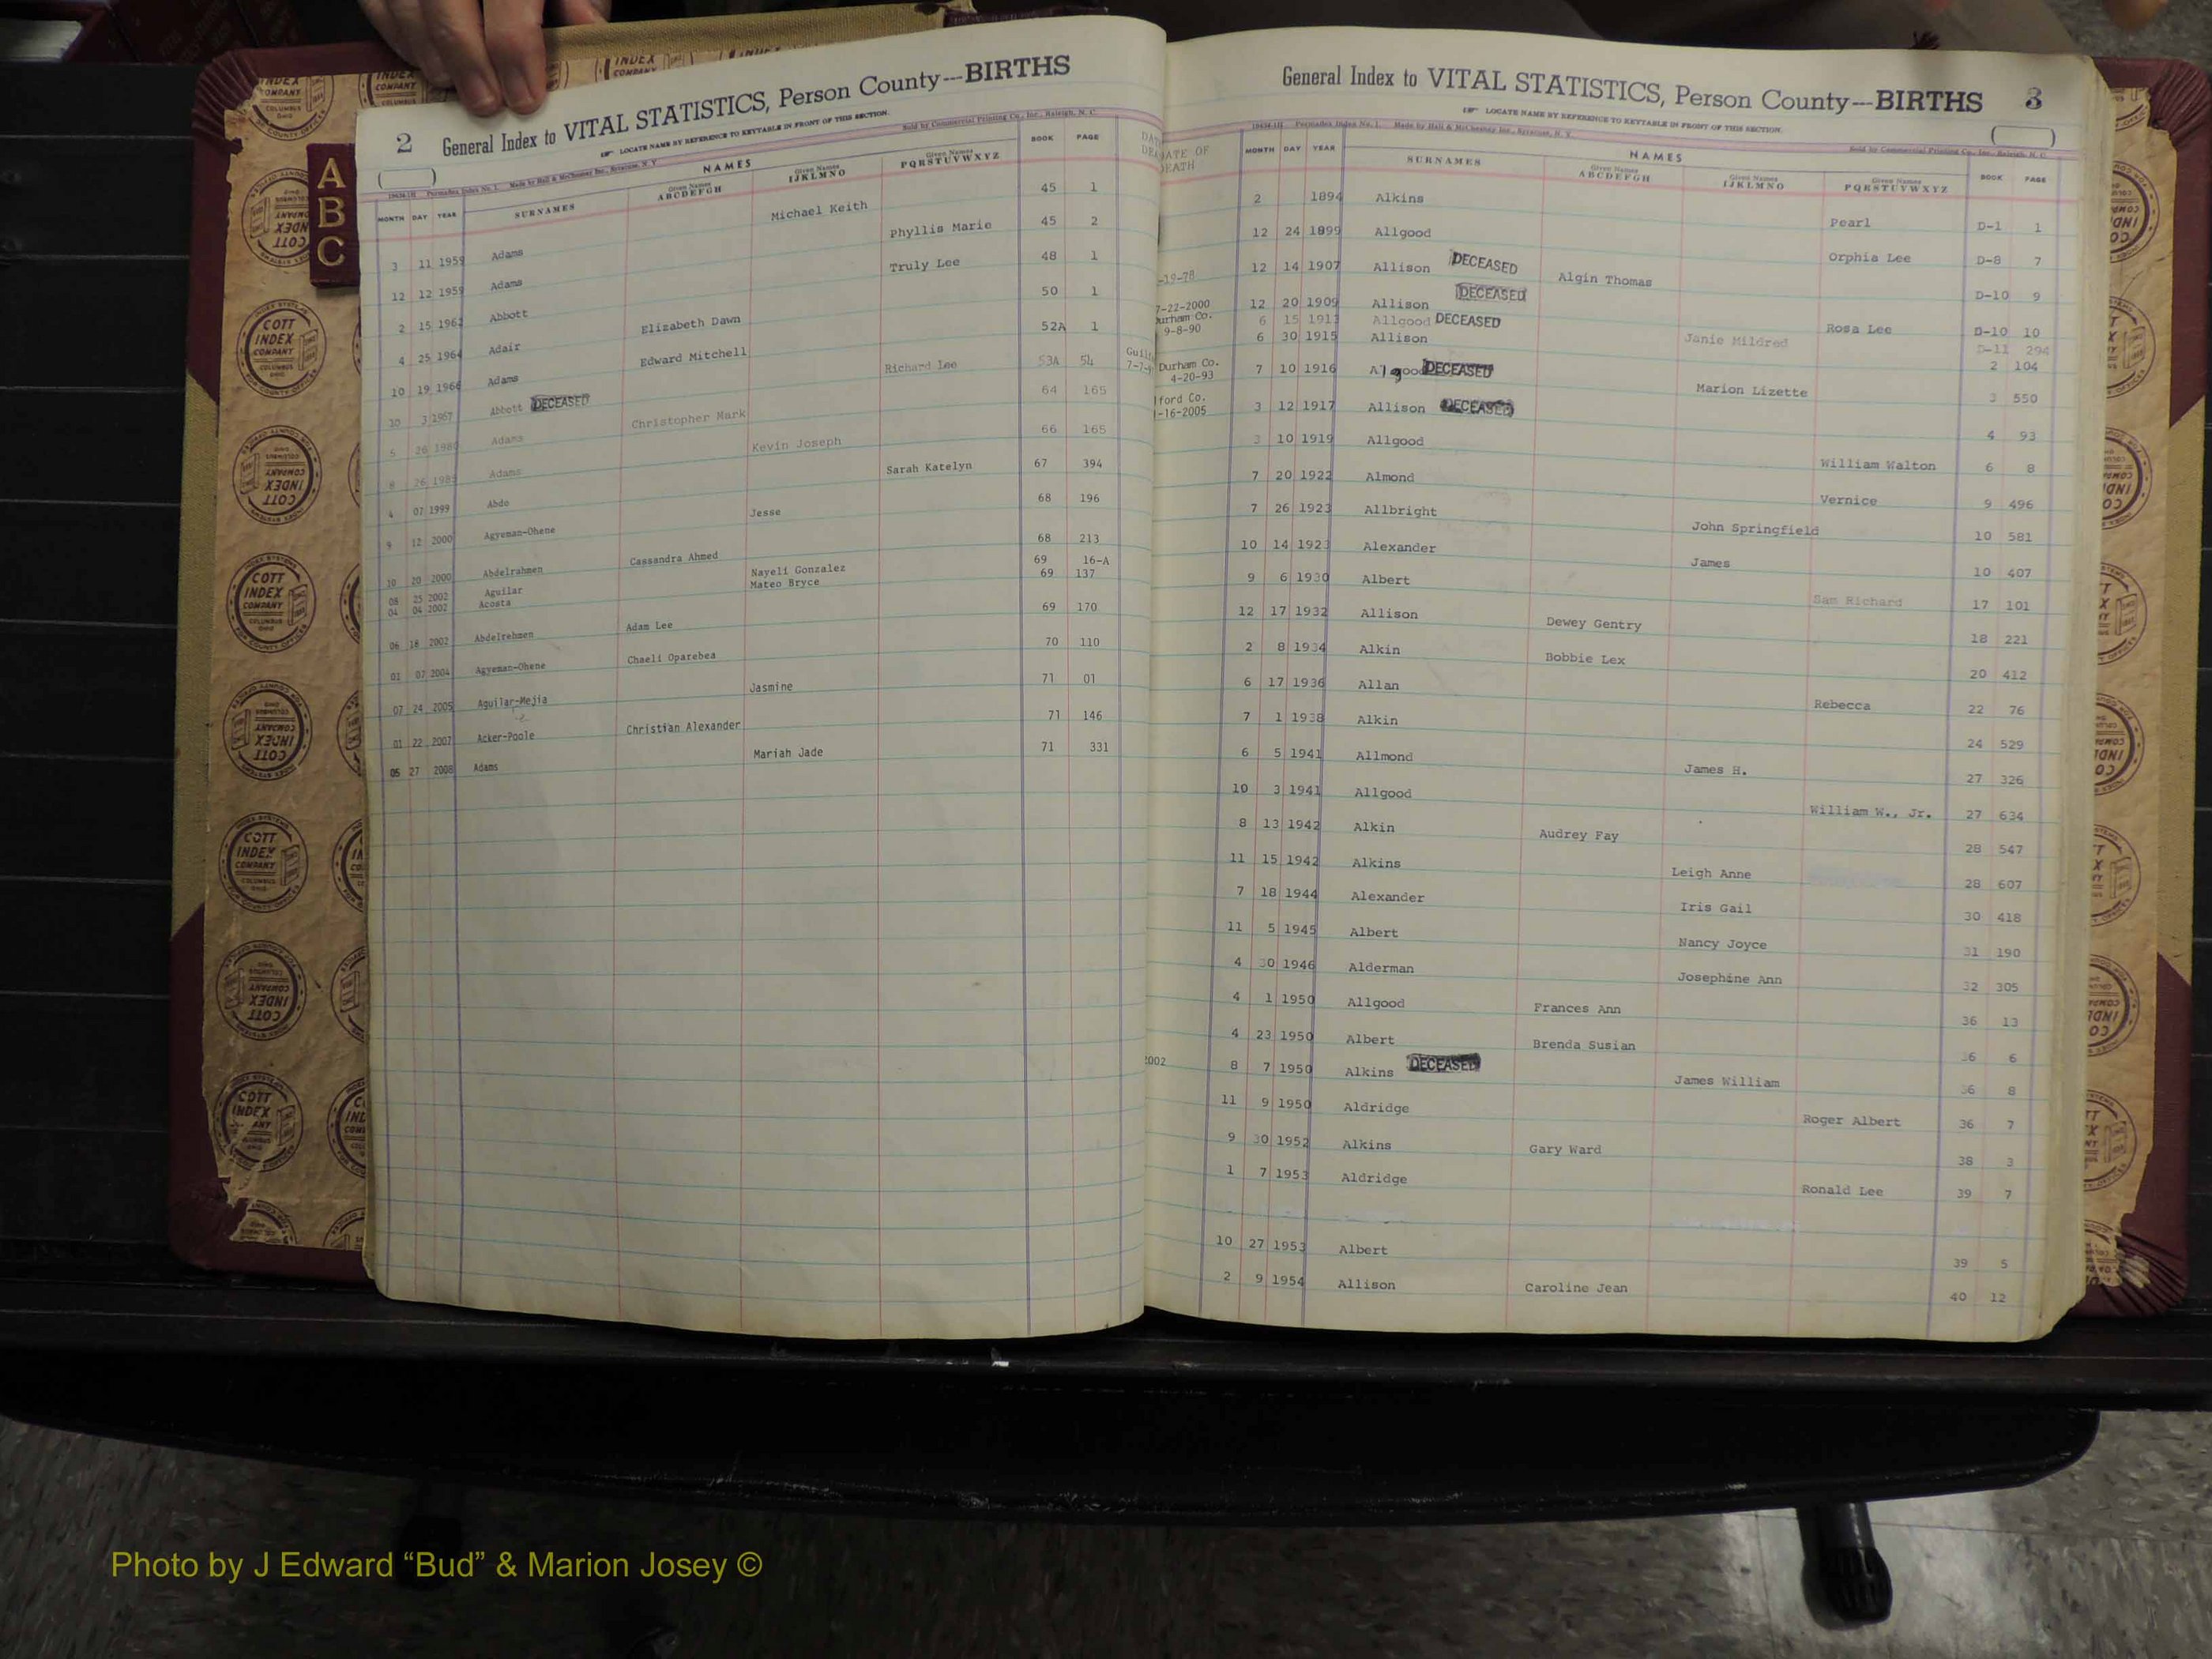 2 General Index to VITAL STATISTICS, Person County---BIRTHS
LOCATE NAME BY REFERENCE TO KEYTABLE IN FRONT OF THIS SECTION.
Sold by Commercial Printing Co., Inc., Raleigh, N. C.
NAMES
MONTH DAY YEAR SURNAMES Given Names ABCDEFGH Given Names IJKLMNO Given Names PQRSTUVWXYZ BOOK PAGE
3 11 1959 Adams Michael Keith 45 1
12 12 1959 Adams Phyllis Marie 45 2
2 15 1962 Abbott Truly Lee 48 1
4 25 1964 Adair Elizabeth Dawn 50 1
10 19 1966 Adams Edward Mitchell 52A 1
10 3 1967 Abbott DECEASED Richard Lee 53A 54
5 26 1980 Adams Christopher Mark 64 165
8 26 1985 Adams Kevin Joseph 66 165
4 07 1999 Abdo Sarah Katelyn 67 394
9 12 2000 Agyeman-Ohene Jesse 68 196
10 20 2000 Abdelrahmen Cassandra Ahmed 68 213
08 25 2002 Aguilar Nayeli Gonzalez 69 16-A
04 04 2002 Acosta Mateo Bryce 69 137
06 18 2002 Abdelrehmen Adam Lee 69 170
01 07 2004 Agyeman-Ohene Chaeli Oparebea 70 110
07 24 2005 Aguilar-Mejia Jasmine 71 01
01 22 2007 Acker-Poole Christian Alexander 71 146
05 27 2008 Adams Mariah Jade 71 331
General Index to VITAL STATISTICS, Person County---BIRTHS 3
LOCATE NAME BY REFERENCE TO KEYTABLE IN FRONT OF THIS SECTION.
Sold by Commercial Printing Co., Inc., Raleigh, N. C.
NAMES
MONTH DAY YEAR SURNAMES Given Names ABCDEFGH Given Names IJKLMNO Given Names PQRSTUVWXYZ BOOK PAGE
2 1894 Alkins Pearl D-1 1
12 24 1899 Allgood Orphia Lee D-8 7
-19-78 12 14 1907 Allison DECEASED Algin Thomas D-10 9
7-22-2000 12 20 1909 Allison DECEASED Rosa Lee D-10 10
Durham Co. 6 15 1913 Allgood DECEASED Janie Mildred D-11 294
9-8-90 6 30 1915 Allison 2 104
Durham Co. 4-20-93 7 10 1916 Algood DECEASED Marion Lizette 3 550
ford Co. -16-2005 3 12 1917 Allison DECEASED 4 93
3 10 1919 Allgood William Walton 6 8
7 20 1922 Almond Vernice 9 496
7 26 1923 Allbright John Springfield 10 581
10 14 1923 Alexander James 10 407
9 6 1930 Albert Sam Richard 17 101
12 17 1932 Allison Dewey Gentry 18 221
2 8 1934 Alkin Bobbie Lex 20 412
6 17 1936 Allan Rebecca 22 76
7 1 1938 Alkin 24 529
6 5 1941 Allmond James H. 27 326
10 3 1941 Allgood William W., Jr. 27 634
8 13 1942 Alkin Audrey Fay 28 547
11 15 1942 Alkins Leigh Anne 28 607
7 18 1944 Alexander Iris Gail 30 418
11 5 1945 Albert Nancy Joyce 31 190
4 30 1946 Alderman Josephine Ann 32 305
4 1 1950 Allgood Frances Ann 36 13
4 23 1950 Albert Brenda Susian 36 6
2002 8 7 1950 Alkins DECEASED James William 36 8
11 9 1950 Aldridge Roger Albert 36 7
9 30 1952 Alkins Gary Ward 38 3
1 7 1953 Aldridge Ronald Lee 39 7
10 27 1953 Albert 39 5
2 9 1954 Allison Caroline Jean 40 12
A
B
C
COTT INDEX COMPANY COLUMBUS OHIO
Photo by J Edward “Bud” & Marion Josey ©